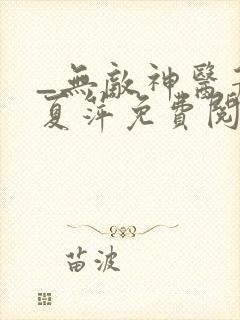 _無敵神醫
夏萍免費閱
苗波